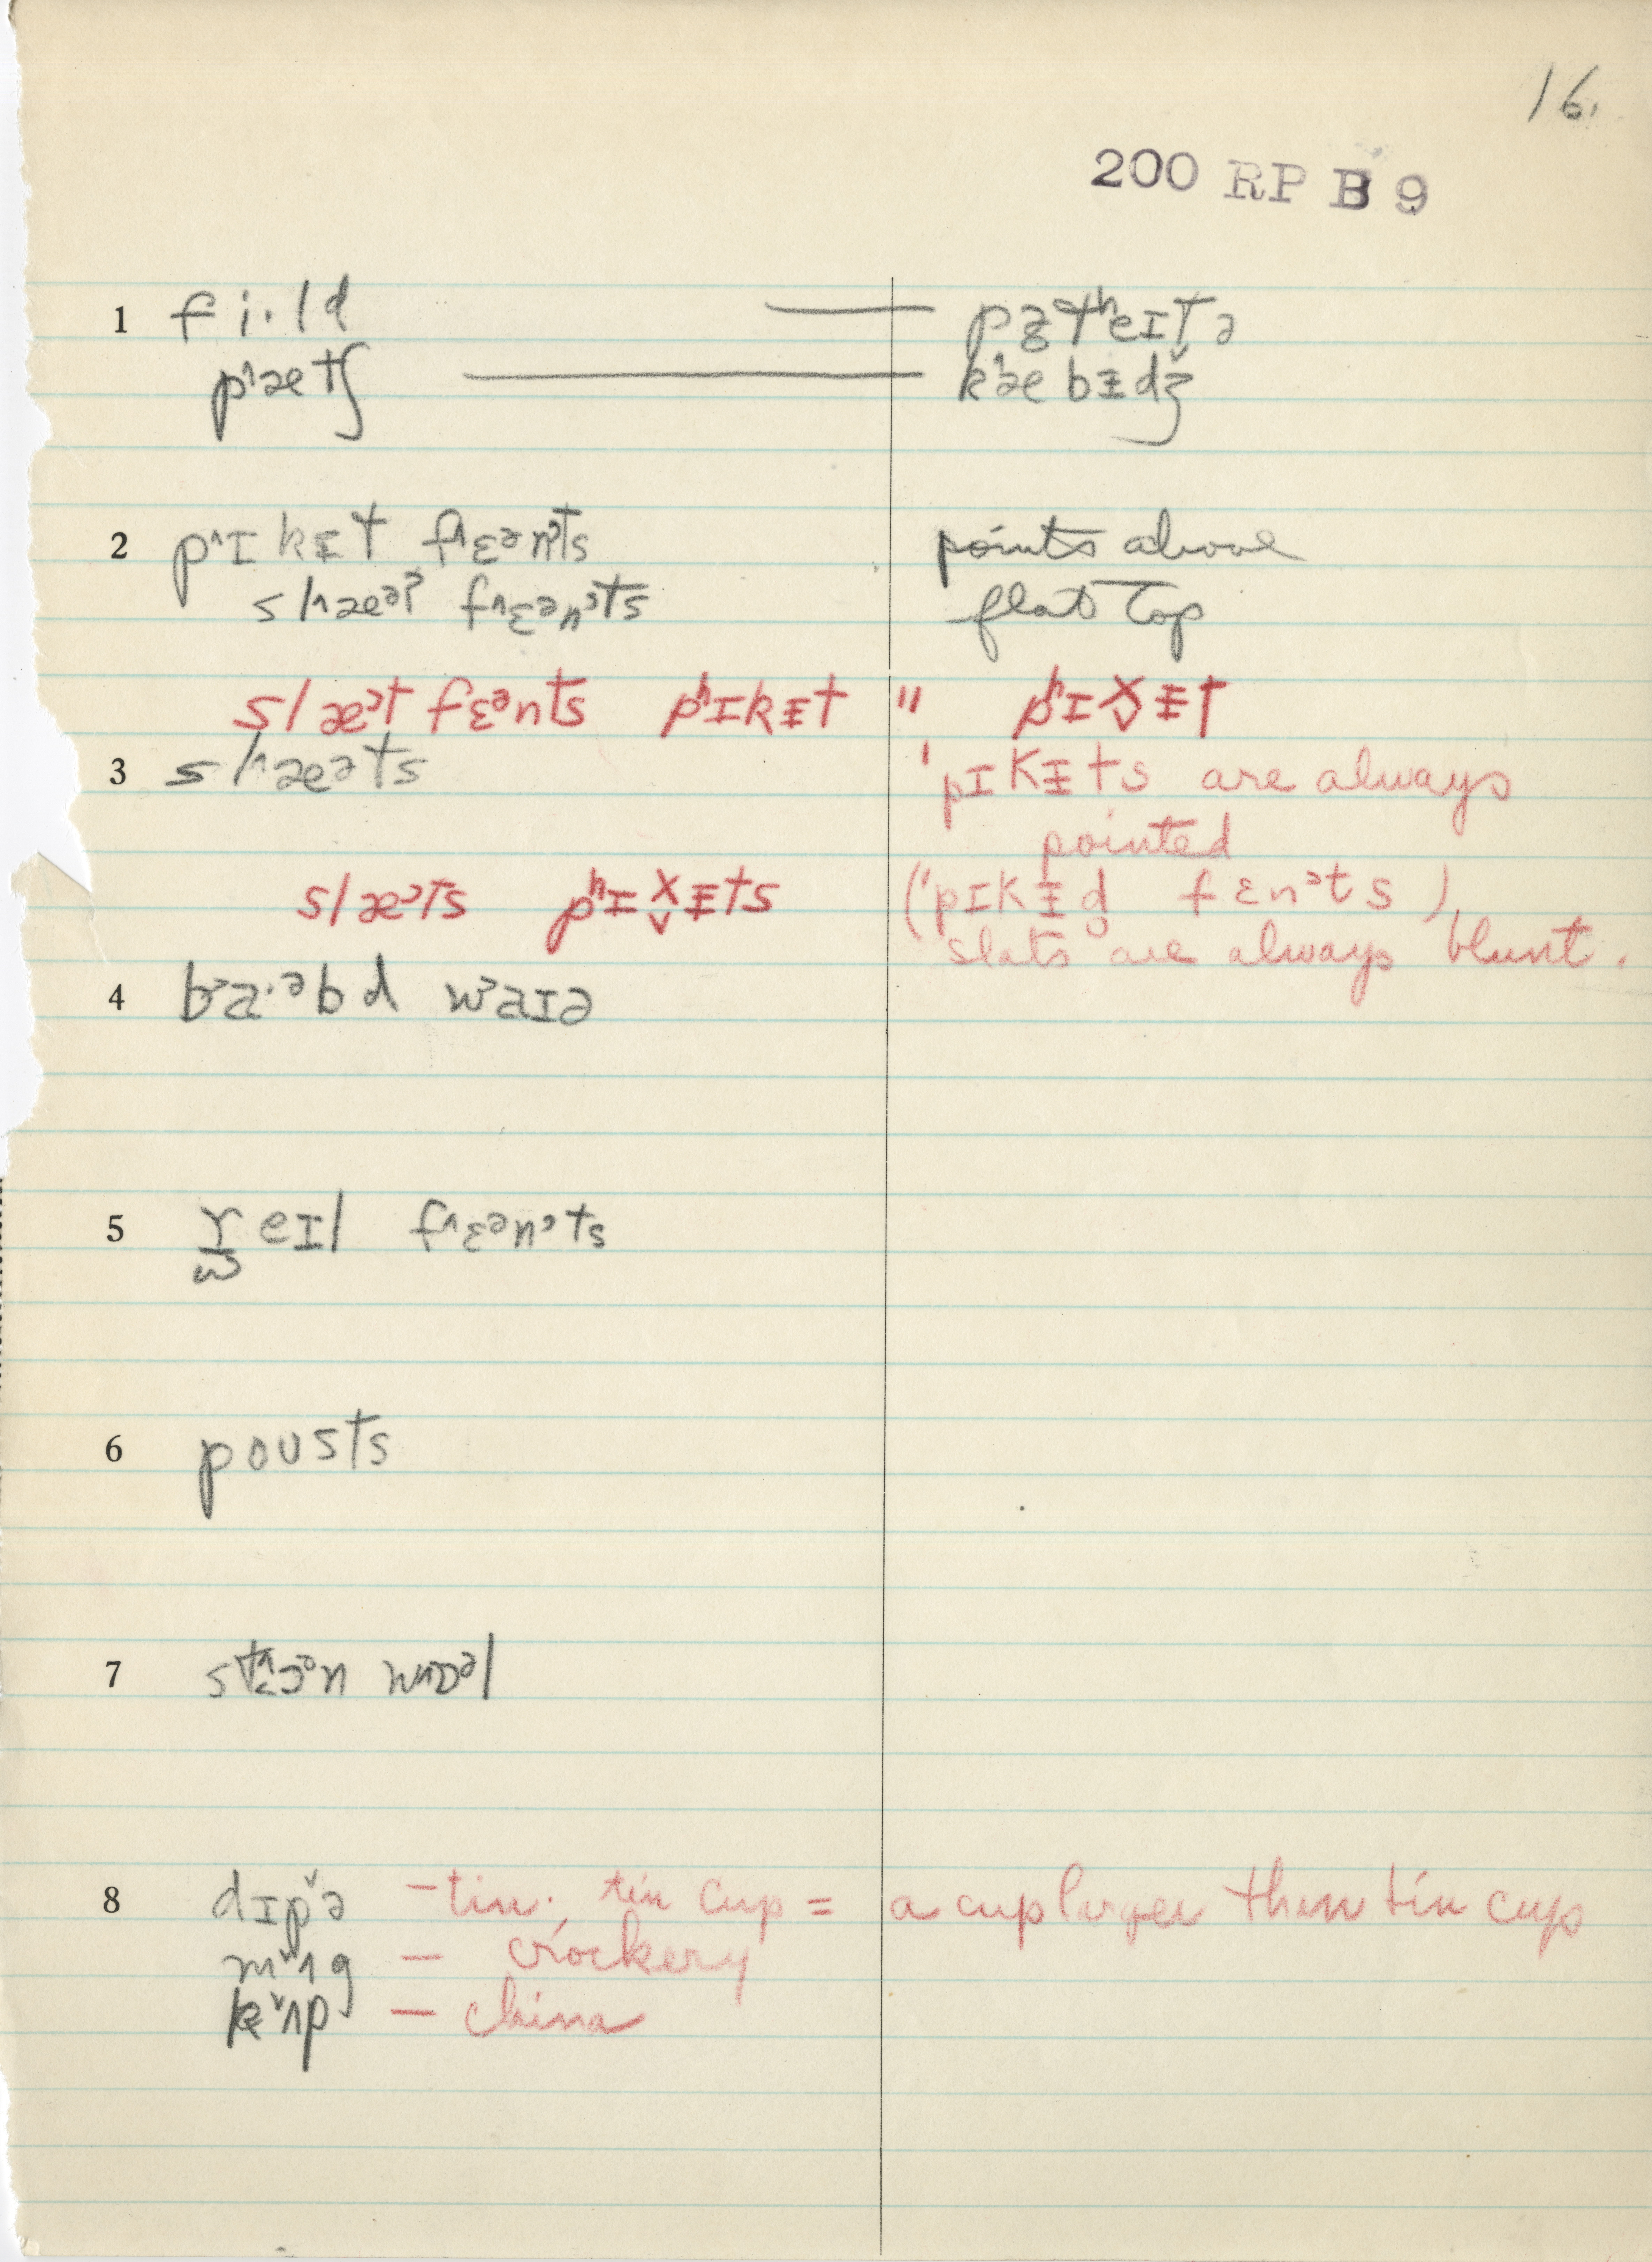 16.
200 RP B 9
1 fi·ld — pᵻtʰeɪtə
pˈætʃ — kˈæbᵻdʒ
2 pˈɪkᵻt fˈɛᵊnᵗts points above
slˈæᵊt fˈɛᵊnᵗts flat top
slæᵊt fɛᵊnts pʰɪkᵻt " pʰɪx̬ᵻt
3 slˈæəts ˈpɪkᵻts are always
pointed
slæᵊts pʰɪx̬ᵻts (ˈpɪkᵻd̥ fɛnᵊts)
slats are always blunt.
4 ba·ᵊbd waɪə
5 r̫eɪl fˈɛᵊnᵗts
6 poʊsts
7 wɒᵊl
8 dɪp̌ə – tin. tin cup = a cup larger than tin cup
m̌ʌg – crockery
ǩʌp – china